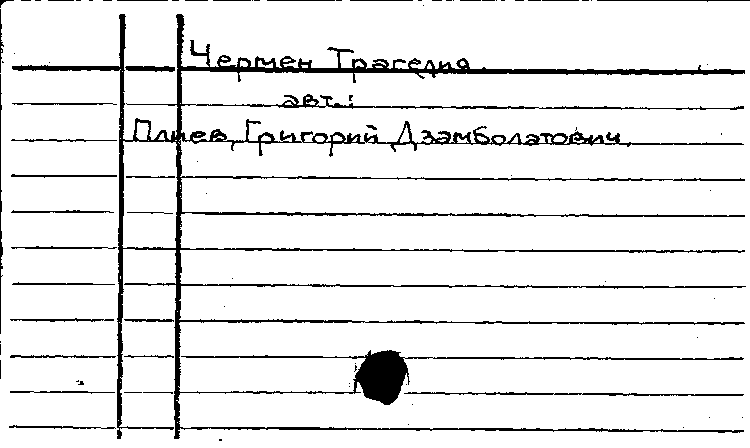 Чермен Трагедия.
авт.:
Плиев, Григорий Дзамболатович.